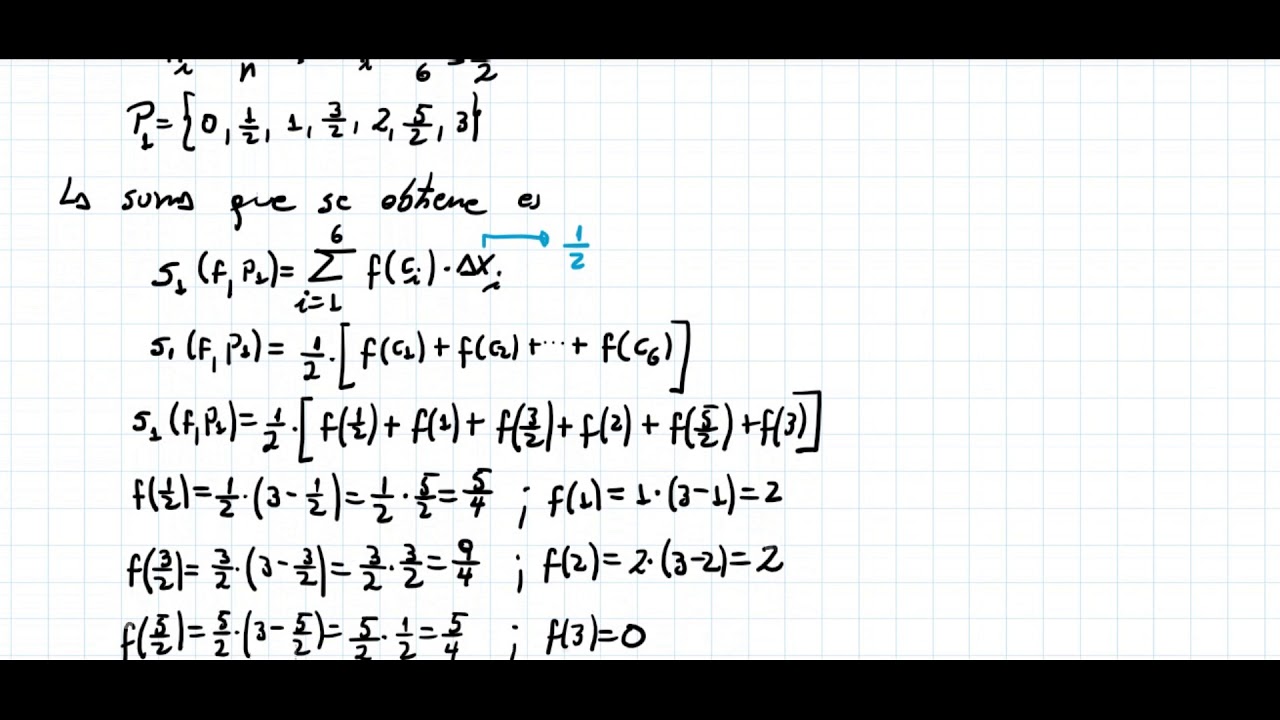 i n i 6 2
P₁ = {0, 1/2, 1, 3/2, 2, 5/2, 3}
↳ suma que se obtiene es
S₁(f, P₁) = ∑_{i=1}^{6} f(c_i) · Δx_i → 1/2
S₁(f, P₁) = 1/2 · [f(c₁) + f(c₂) + ··· + f(c₆)]
S₁(f, P₁) = 1/2 · [f(1/2) + f(1) + f(3/2) + f(2) + f(5/2) + f(3)]
f(1/2) = 1/2 · (3 - 1/2) = 1/2 · 5/2 = 5/4 ; f(1) = 1 · (3-1) = 2
f(3/2) = 3/2 · (3 - 3/2) = 3/2 · 3/2 = 9/4 ; f(2) = 2 · (3-2) = 2
f(5/2) = 5/2 · (3 - 5/2) = 5/2 · 1/2 = 5/4 ; f(3) = 0